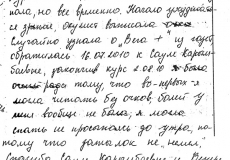 пола, но все временно. Начало ухудшаться
зрение, окулист
Случайно узнала о "Вега +" из газет
обратилась 16.07.2010 к Сауле Карам-
баевне, закончив курс 2.08.10 я была
рада тому, что во-первых я
могла читать без очков, болей у
меня вообще не было, я могла
спать не просыпаясь до утра, по-
тому что затылок не "ныл".
Спасибо Сауле Карамбаевне и Вегии